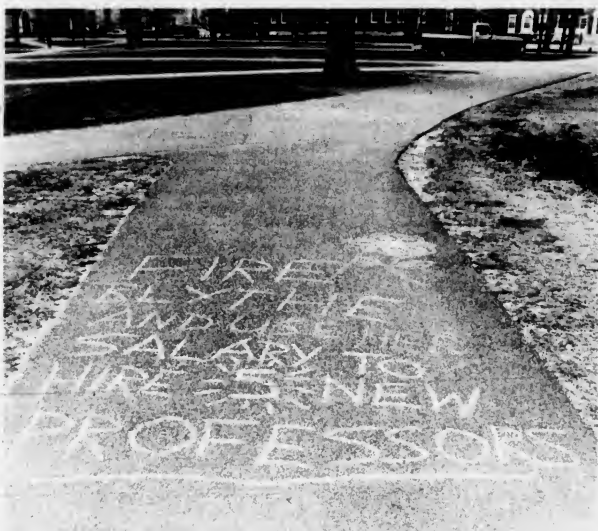 FIRE
BLYTHE
AND USE HER
SALARY TO
HIRE 5 NEW
PROFESSORS